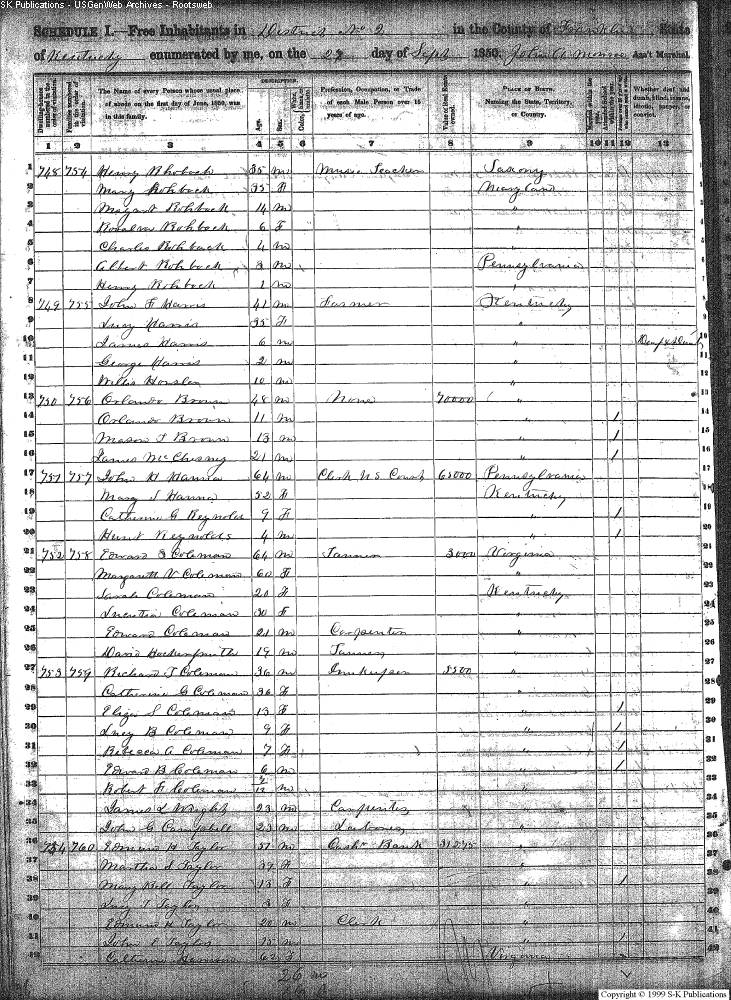 SK Publications - USGenWeb Archives - Rootsweb
SCHEDULE I.—Free Inhabitants in District No 2 in the County of Franklin State
of Kentucky enumerated by me, on the 27 day of Sept 1850. John A Monroe Ass't Marshal.
DESCRIPTION.
Dwelling-houses numbered in the order of visitation. Families numbered in the order of visitation. The Name of every Person whose usual place of abode on the first day of June, 1850, was in this family. Age. Sex. Color, Profession, Occupation, or Trade of each Male Person over 15 years of age. Value of Real Estate owned. PLACE OF BIRTH. Naming the State, Territory, or Country. Married within the year. Attended School within the year. Whether deaf and dumb, blind, insane, idiotic, pauper, or convict.
1 2 3 4 5 6 7 8 9 10 11 12 13
1 748 754 Henry Rhoback 35 m Music Teacher Saxony 1
2 Mary Rohback 35 F Maryland 2
3 Rohback 14 m " 3
4 Rohback 6 F " 4
5 Charles Rohback 4 m " 5
6 Albert Rohback 3 m Pennsylvania 6
7 Henry Rohback 1 m " 7
8 749 755 John F Harris 41 m Farmer Kentucky 8
9 Lucy Harris 35 F " 9
10 James Harris 6 m " Deaf & Dum 10
11 George Harris 2 m " 11
12 Willis 10 m " 12
13 750 756 Orlando Brown 48 m None 70000 " 13
14 Orlando Brown 11 m " / 14
15 Mason T Brown 13 m " / 15
16 James McChesny 21 m " / 16
17 751 757 John H Hanna 64 m Clerk U S Court 65000 Pennsylvania 17
18 Mary S Hanna 52 F Kentucky 18
19 Catherine G Reynolds 9 F " / 19
20 Hunt Reynolds 4 m " / 20
21 752 758 Edward S Coleman 64 m Tanner 3000 Virginia 21
22 Margarett V Coleman 60 F " 22
23 Sarah Coleman 20 F Kentucky 23
24 Lucretia Coleman 30 F " 24
25 Edward Coleman 21 m Carpenter " 25
26 David 19 m Tanner " 26
27 753 759 Richard T Coleman 36 m Innkeeper 8500 " 27
28 Catherine G Coleman 36 F " 28
29 Eliza S Coleman 13 F " / 29
30 Lucy B Coleman 9 F " / 30
31 Rebecca A Coleman 7 F " / 31
32 Edward B Coleman 6 m " / 32
33 Robert F Coleman 2/12 m " 33
34 James L Wright 23 m Carpenter " 34
35 John G Campbell 23 m " 35
36 754 760 Edmund H Taylor 51 m Cash. Bank 31275 " 36
37 Martha S Taylor 39 F " 37
38 Mary Belt Taylor 13 F " / 38
39 Lucy T Taylor 3 F " 39
40 Edmund H Taylor 20 m Clerk " 40
41 John E Taylor 15 m " / 41
42 Catherine 62 F Virginia 42
26 m
Copyright © 1999 S-K Publications